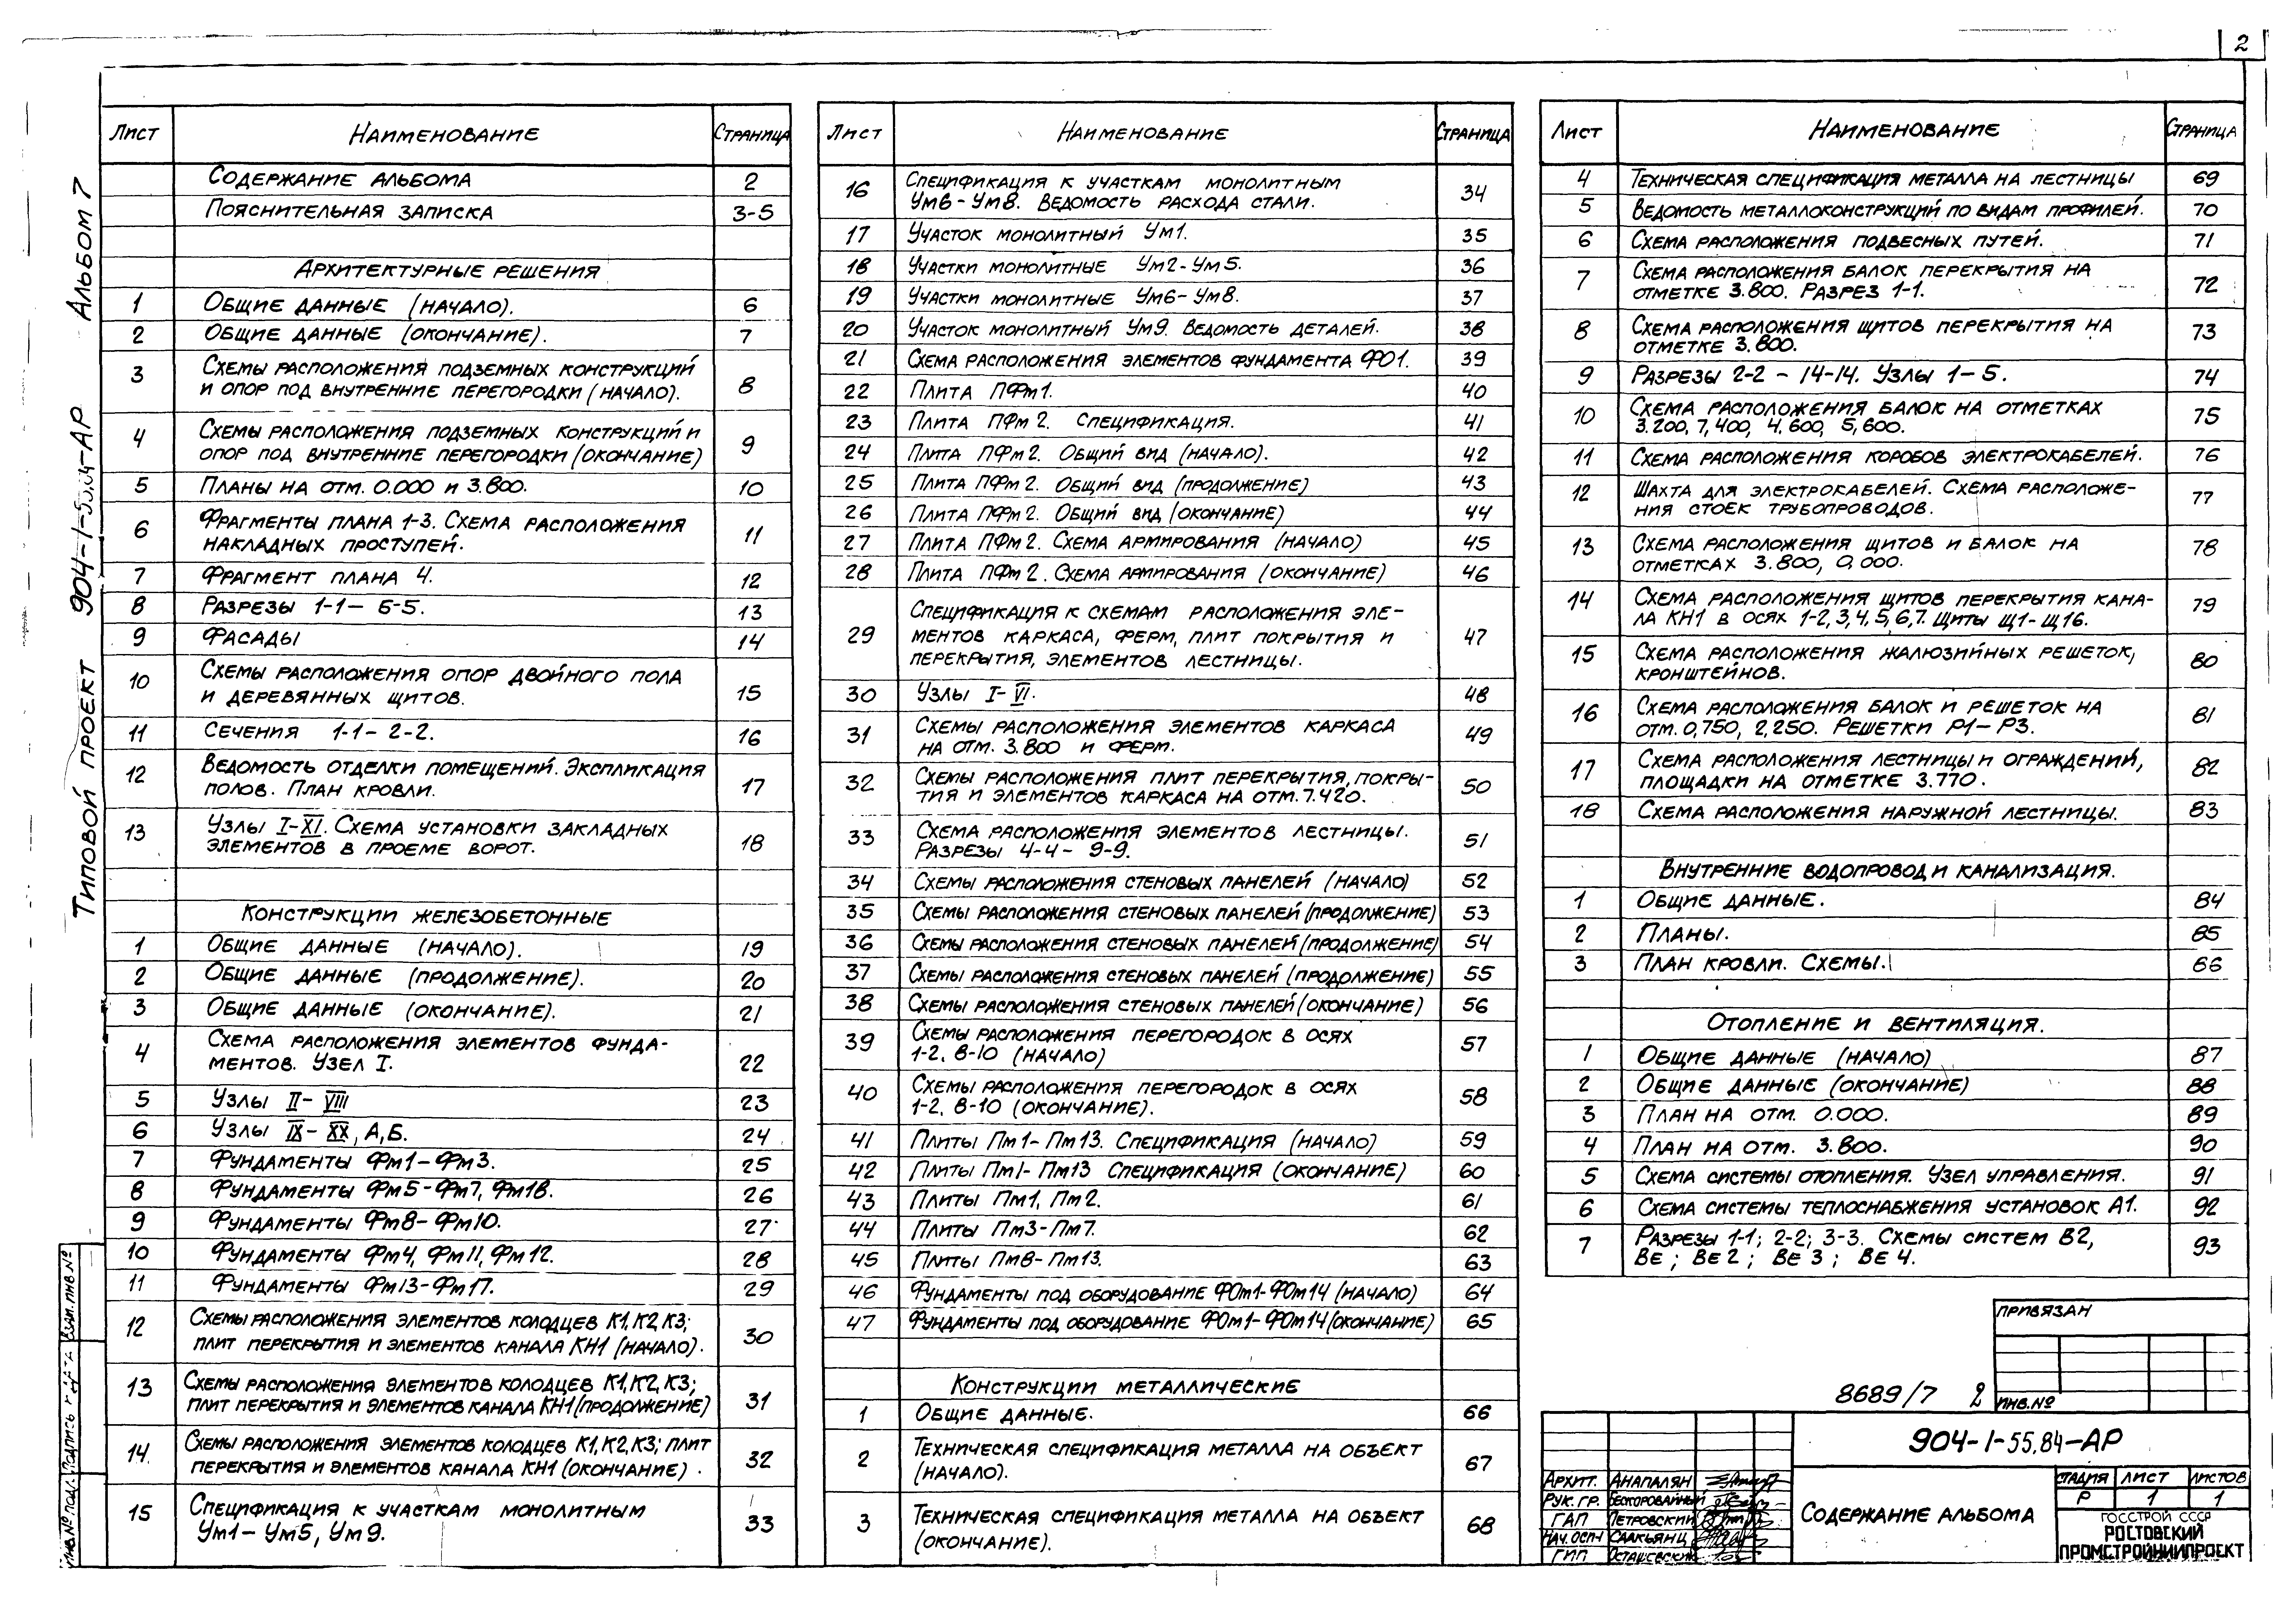 2
Типовой проект 904-1-55.84-АР Альбом 7
Лист Наименование Страница
Содержание альбома 2
Пояснительная записка 3-5
Архитектурные решения
1 Общие данные (начало). 6
2 Общие данные (окончание). 7
3 Схемы расположения подземных конструкций
и опор под внутренние перегородки (начало). 8
4 Схемы расположения подземных конструкций и
опор под внутренние перегородки (окончание) 9
5 Планы на отм. 0.000 и 3.800. 10
6 Фрагменты плана 1-3. Схема расположения
накладных проступей. 11
7 Фрагмент плана 4. 12
8 Разрезы 1-1 – 5-5. 13
9 Фасады 14
10 Схемы расположения опор двойного пола
и деревянных щитов. 15
11 Сечения 1-1 – 2-2. 16
12 Ведомость отделки помещений. Экспликация
полов. План кровли. 17
13 Узлы I-XI. Схема установки закладных
элементов в проеме ворот. 18
Конструкции железобетонные
1 Общие данные (начало). 19
2 Общие данные (продолжение). 20
3 Общие данные (окончание). 21
4 Схема расположения элементов фунда-
ментов. Узел I. 22
5 Узлы II – VIII 23
6 Узлы IX – XX, А,Б. 24
7 Фундаменты Фм1 – Фм3. 25
8 Фундаменты Фм5 – Фм7, Фм18. 26
9 Фундаменты Фм8 – Фм10. 27
10 Фундаменты Фм4, Фм11, Фм12. 28
11 Фундаменты Фм13 – Фм17. 29
12 Схемы расположения элементов колодцев К1, К2, К3;
плит перекрытия и элементов канала КН1 (начало). 30
13 Схемы расположения элементов колодцев К1, К2, К3;
плит перекрытия и элементов канала КН1 (продолжение) 31
14. Схемы расположения элементов колодцев К1, К2, К3; плит
перекрытия и элементов канала КН1 (окончание). 32
15 Спецификация к участкам монолитным
Ум1 – Ум5, Ум9. 33
Лист Наименование Страница
16 Спецификация к участкам монолитным
Ум6 – Ум8. Ведомость расхода стали. 34
17 Участок монолитный Ум1. 35
18 Участки монолитные Ум2 - Ум5. 36
19 Участки монолитные Ум6 – Ум8. 37
20 Участок монолитный Ум9. Ведомость деталей. 38
21 Схема расположения элементов фундамента ФО1. 39
22 Плита ПФм1. 40
23 Плита ПФм2. Спецификация. 41
24 Плита ПФм2. Общий вид (начало). 42
25 Плита ПФм2. Общий вид (продолжение) 43
26 Плита ПФм2. Общий вид (окончание) 44
27 Плита ПФм2. Схема армирования (начало) 45
28 Плита ПФм2. Схема армирования (окончание) 46
29 Спецификация к схемам расположения эле-
ментов каркаса, ферм, плит покрытия и
перекрытия, элементов лестницы. 47
30 Узлы I – VI. 48
31 Схемы расположения элементов каркаса
на отм. 3.800 и ферм. 49
32 Схемы расположения плит перекрытия, покры-
тия и элементов каркаса на отм. 7.420. 50
33 Схема расположения элементов лестницы.
Разрезы 4-4 – 9-9. 51
34 Схемы расположения стеновых панелей (начало) 52
35 Схемы расположения стеновых панелей (продолжение) 53
36 Схемы расположения стеновых панелей (продолжение) 54
37 Схемы расположения стеновых панелей (продолжение) 55
38 Схемы расположения стеновых панелей (окончание) 56
39 Схемы расположения перегородок в осях
1-2, 8-10 (начало) 57
40 Схемы расположения перегородок в осях
1-2, 8-10 (окончание). 58
41 Плиты Пм1 – Пм13. Спецификация (начало) 59
42 Плиты Пм1 – Пм13 Спецификация (окончание) 60
43 Плиты Пм1, Пм2. 61
44 Плиты Пм3 – Пм7. 62
45 Плиты Пм8 – Пм13. 63
46 Фундаменты под оборудование ФОм1 – ФОм14 (начало) 64
47 Фундаменты под оборудование ФОм1 – ФОм14 (окончание) 65
Конструкции металлические
1 Общие данные. 66
2 Техническая спецификация металла на объект
(начало). 67
3 Техническая спецификация металла на объект
(окончание). 68
Лист Наименование Страница
4 Техническая спецификация металла на лестницы 69
5 Ведомость металлоконструкций по видам профилей. 70
6 Схема расположения подвесных путей. 71
7 Схема расположения балок перекрытия на
отметке 3.800. Разрез 1-1. 72
8 Схема расположения щитов перекрытия на
отметке 3.800. 73
9 Разрезы 2-2 – 14-14. Узлы 1 – 5. 74
10 Схема расположения балок на отметках
3.200, 7,400, 4,600, 5,600. 75
11 Схема расположения коробов электрокабелей. 76
12 Шахта для электрокабелей. Схема расположе-
ния стоек трубопроводов. 77
13 Схема расположения щитов и балок на
отметках 3.800, 0,000. 78
14 Схема расположения щитов перекрытия кана-
ла КН1 в осях 1-2, 3, 4, 5, 6, 7. Щиты Щ1 - Щ16. 79
15 Схема расположения жалюзийных решеток,
кронштейнов. 80
16 Схема расположения балок и решеток на
отм. 0,750, 2,250. Решетки Р1 – Р3. 81
17 Схема расположения лестницы и ограждений,
площадки на отметке 3.770. 82
18 Схема расположения наружной лестницы. 83
Внутренние водопровод и канализация.
1 Общие данные. 84
2 Планы. 85
3 План кровли. Схемы. 86
Отопление и вентиляция.
1 Общие данные (начало) 87
2 Общие данные (окончание) 88
3 План на отм. 0.000. 89
4 План на отм. 3.800. 90
5 Схема системы отопления. Узел управления. 91
6 Схема системы теплоснабжения установок А1. 92
7 Разрезы 1-1; 2-2; 3-3. Схемы систем В2,
ВЕ; ВЕ2; ВЕ3; ВЕ4. 93
Привязан
Инв.№
8689/7 2
904-1-55.84-АР
Архит. Анапалян
Рук. гр. Бескоровайный
ГАП Петровский
Нач. осп-1 Саакьянц
ГИП Осташевский
Содержание альбома
Стадия Лист Листов
Р 1 1
Госстрой СССР
Ростовский
Промстройниипроект
Инв.№ подл. Подпись и дата Взам. инв.№